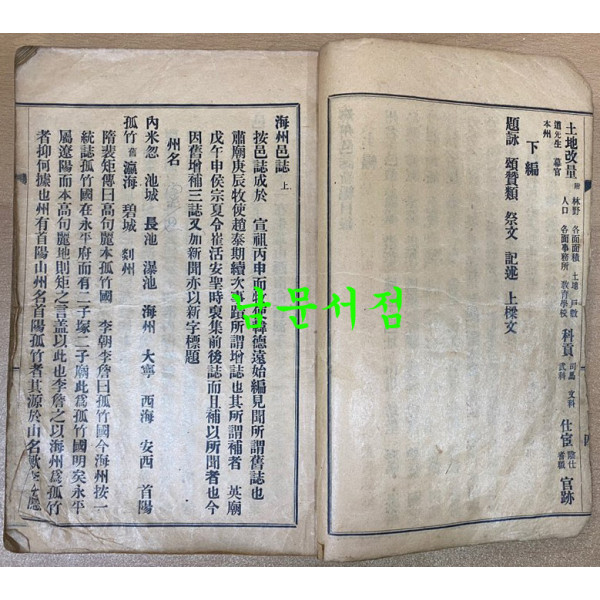 土地改量 附 林野 各面面積 土地 戶數 人口 各面事務所 教育學校 科貢 司馬 文科 武科 仕宦 蔭仕 耆職 官跡
道先生 幕官 本州
下編
題詠 頌贊類 祭文 記述 上樑文
海州邑誌 上
按邑誌成於 宣祖丙申而牧使韓德遠始編見聞所謂舊誌也
肅廟庚辰牧使趙泰期續次事蹟所謂增誌也其所謂補者 英廟
戊午申侯宗夏令崔活安聖時裒集前後誌而且補以所聞者也今
因舊增補三誌又加新聞亦以新字標題
州名
內米忽 池城 長池 瀑池 海州 大寧 西海 安西 首陽
孤竹 舊 瀛海 碧城 㓒州
隋裴矩傳曰高句麗本孤竹國 李朝李詹曰孤竹國今海州按一
統誌孤竹國在永平府而有二子塚二子廟此爲孤竹國明矣永平
屬遼陽而本高句麗地則矩之言盖以此也李詹之以海州爲孤竹
者抑何據也州有首陽山州名首陽孤竹者其源於山名歟
남문서점